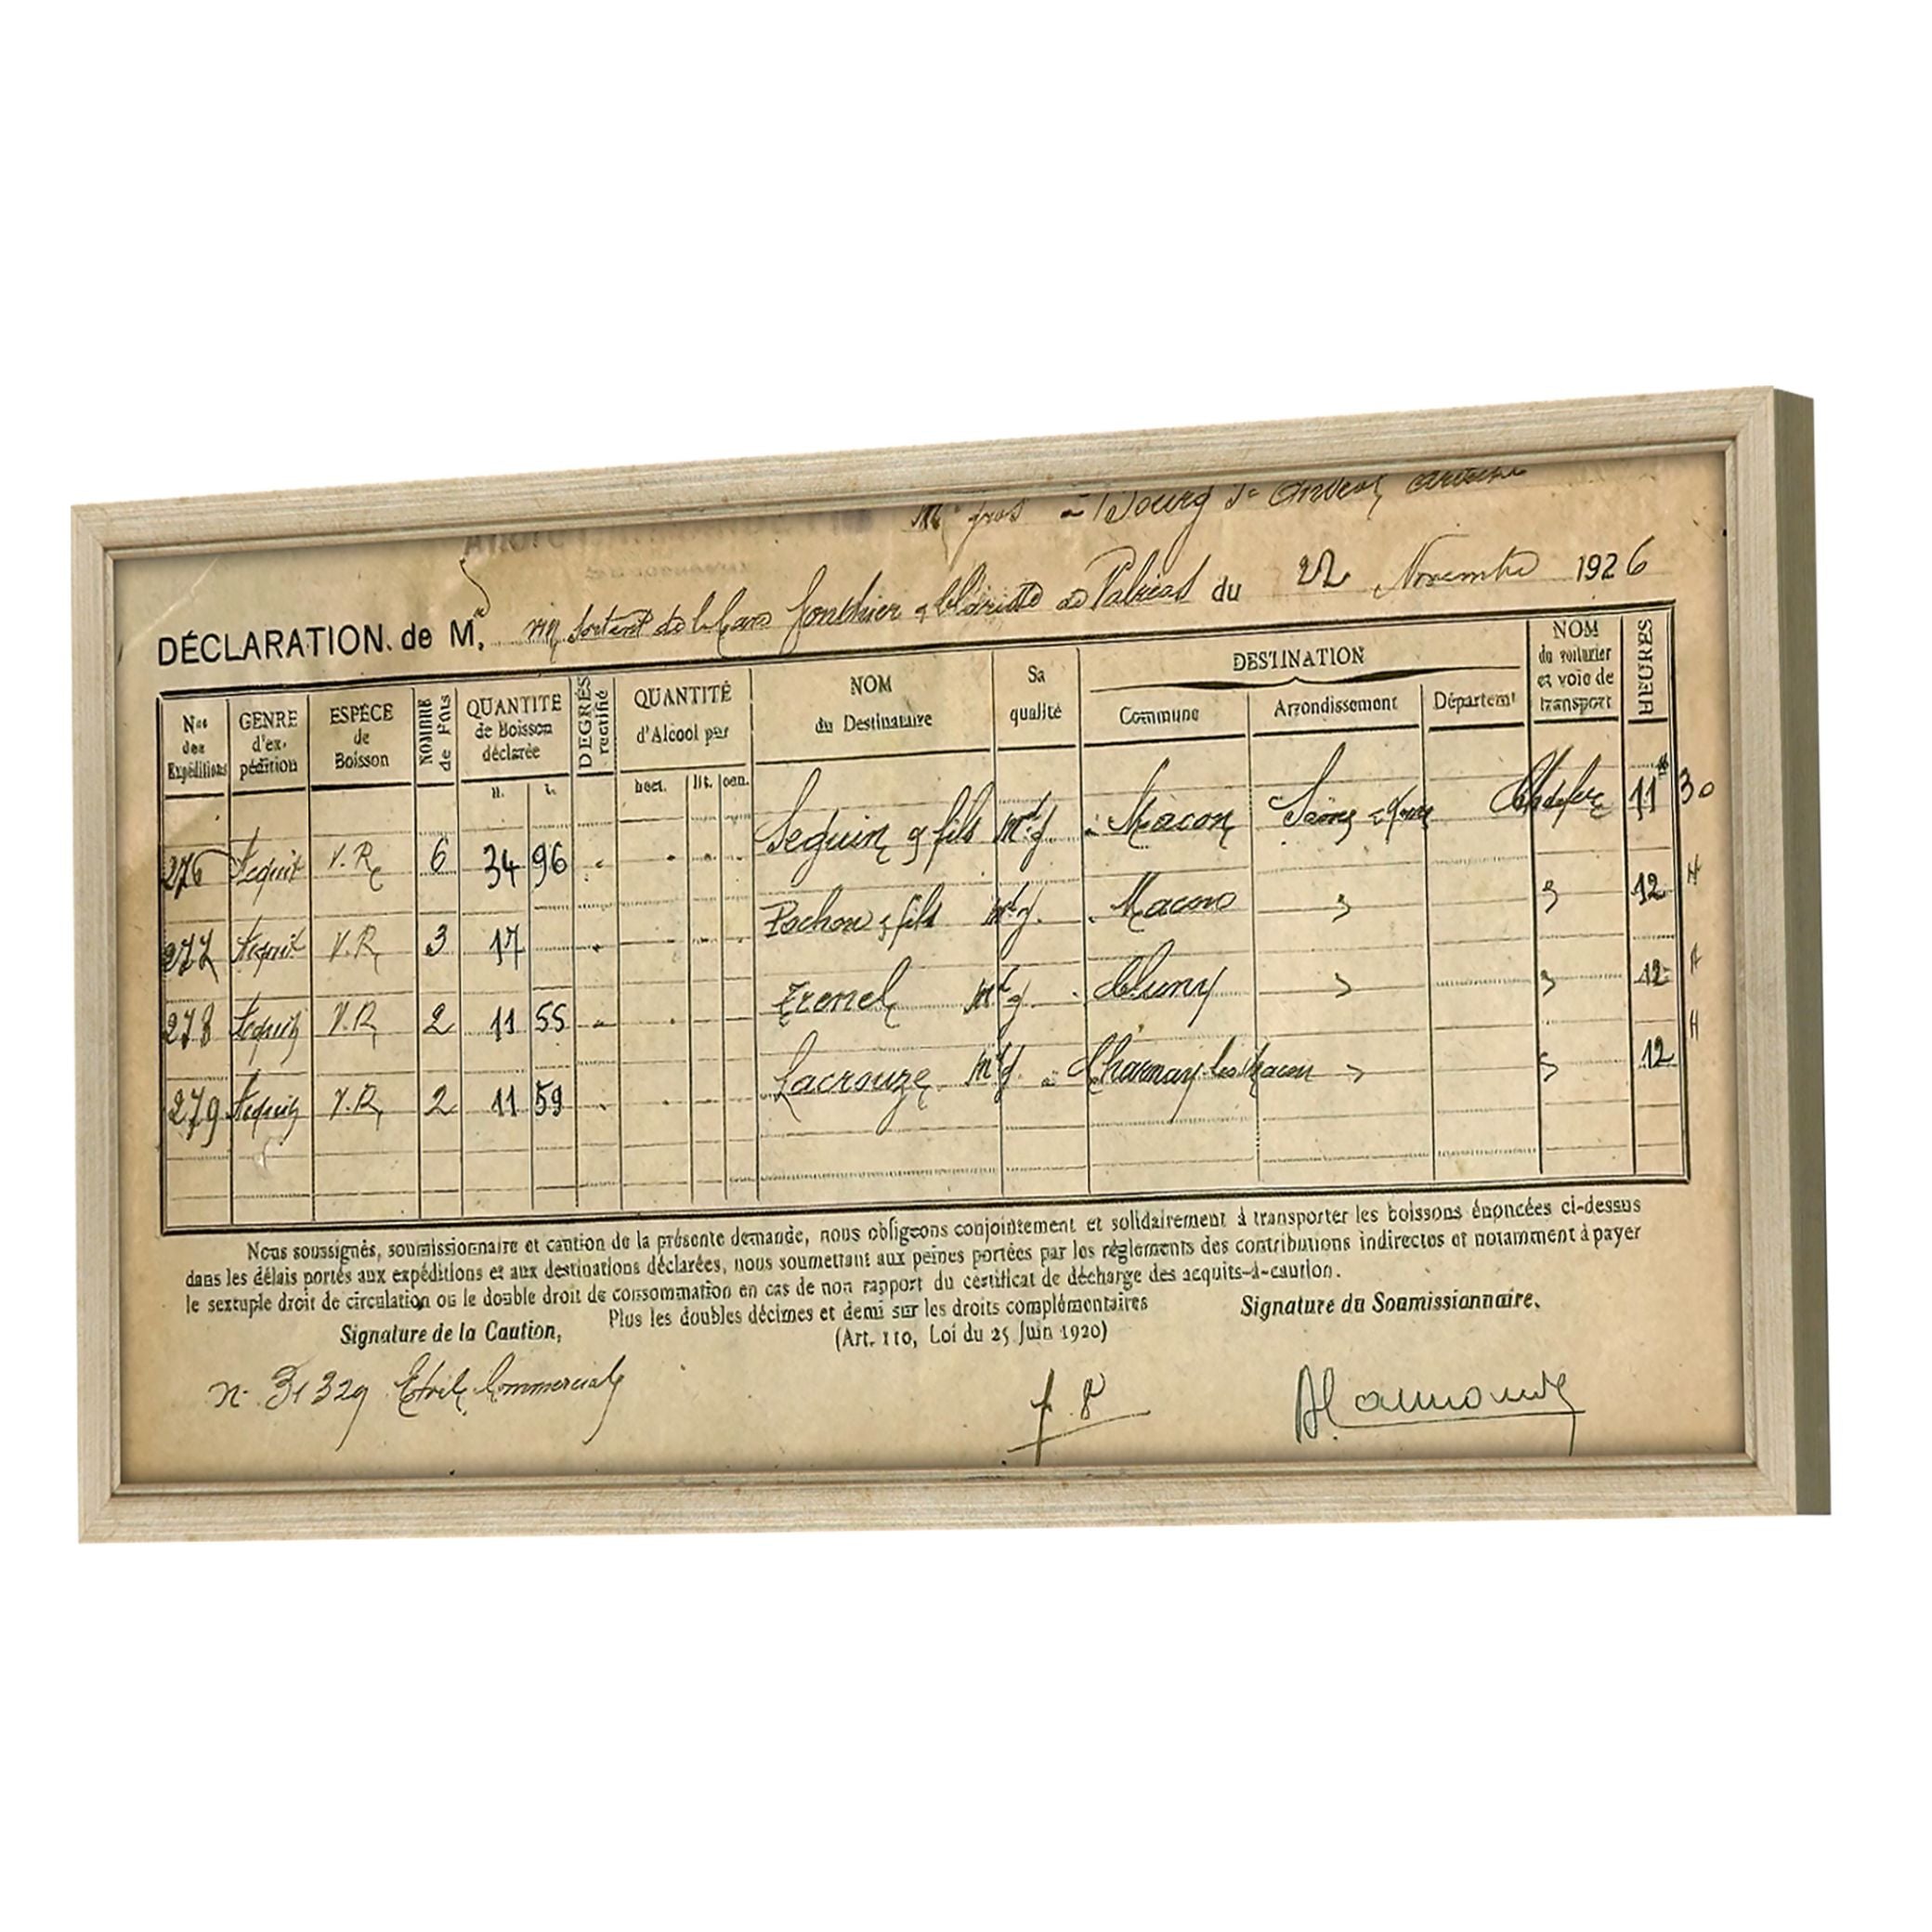 Md gros à Bourg St Andéol Ardèche
DÉCLARATION de M. sortent de Valréas du 22 Novembre 1926
Nos des Expéditions
GENRE d'ex-pédition
ESPÈCE de Boisson
NOMBRE de Fûts
QUANTITÉ de Boisson déclarée
H. L.
DEGRÉS rectifié
QUANTITÉ d'Alcool pur
hect. lit. cen.
NOM du Destinataire
Sa qualité
DESTINATION
Commune Arrondissement Départemt
NOM du voiturier et voie de transport
HEURES
276 Acquit V.R. 6 34 96 Seguin & fils Md g. à Macon Saône & Ch de fer 11 H 30
277 Acquit V.R. 3 17 Pochon & fils Md g. Macon " " 12 H
278 Acquit V.R. 2 11 55 Trenel Md g. Cluny " " 12 H
279 Acquit V.R. 2 11 59 Lacrouze Md g. à Charnay les Macon " " 12 H
Nous soussignés, soumissionnaire et caution de la présente demande, nous obligeons conjointement et solidairement à transporter les boissons énoncées ci-dessus
dans les délais portés aux expéditions et aux destinations déclarées, nous soumettant aux peines portées par les règlements des contributions indirectes et notamment à payer
le sextuple droit de circulation ou le double droit de consommation en cas de non rapport du certificat de décharge des acquits-à-caution.
Plus les doubles décimes et demi sur les droits complémentaires
(Art. 110, Loi du 25 Juin 1920)
Signature de la Caution,
Signature du Soumissionnaire,
n° 31329